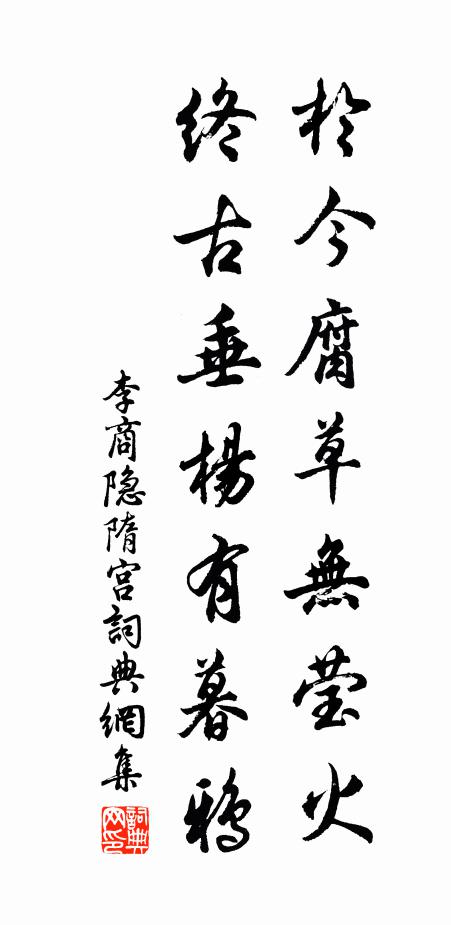 於今腐草無萤火
終古垂楊有暮鴉
李商隐隋宫詞典網集
詞典网印